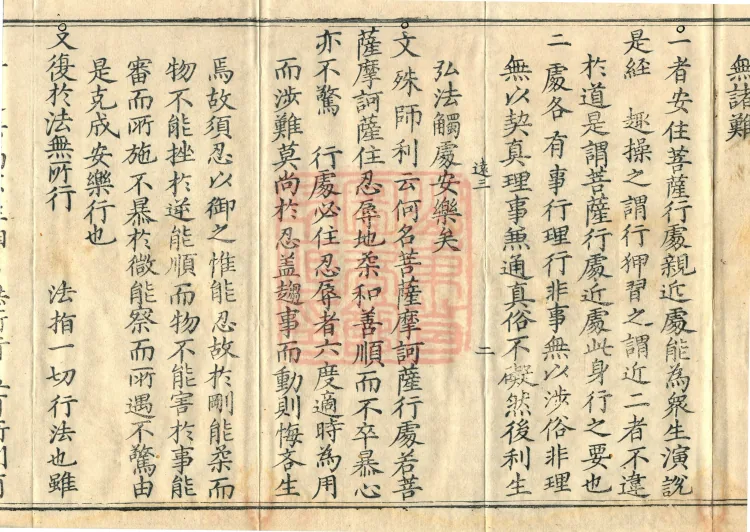 無諸難
一者安住菩薩行處親近處能為衆生演說
是經 趣操之謂行狎習之謂近二者不違
於道是謂菩薩行處近處此身行之要也
二處各有事行理行非事無以涉俗非理
無以契真理事兼通真俗不礙然後利生
弘法觸處安樂矣
遠三 二
文殊師利云何名菩薩摩訶薩行處若菩
薩摩訶薩住忍辱地柔和善順而不卒暴心
亦不驚 行處必住忍辱者六度適時為用
而涉難莫尚於忍盖趨事而動則悔吝生
焉故須忍以御之惟能忍故於剛能柔而
物不能挫於逆能順而物不能害於事能
審而所施不暴於微能察而所遇不驚由
是克成安樂行也
又復於法無所行 法指一切行法也雖